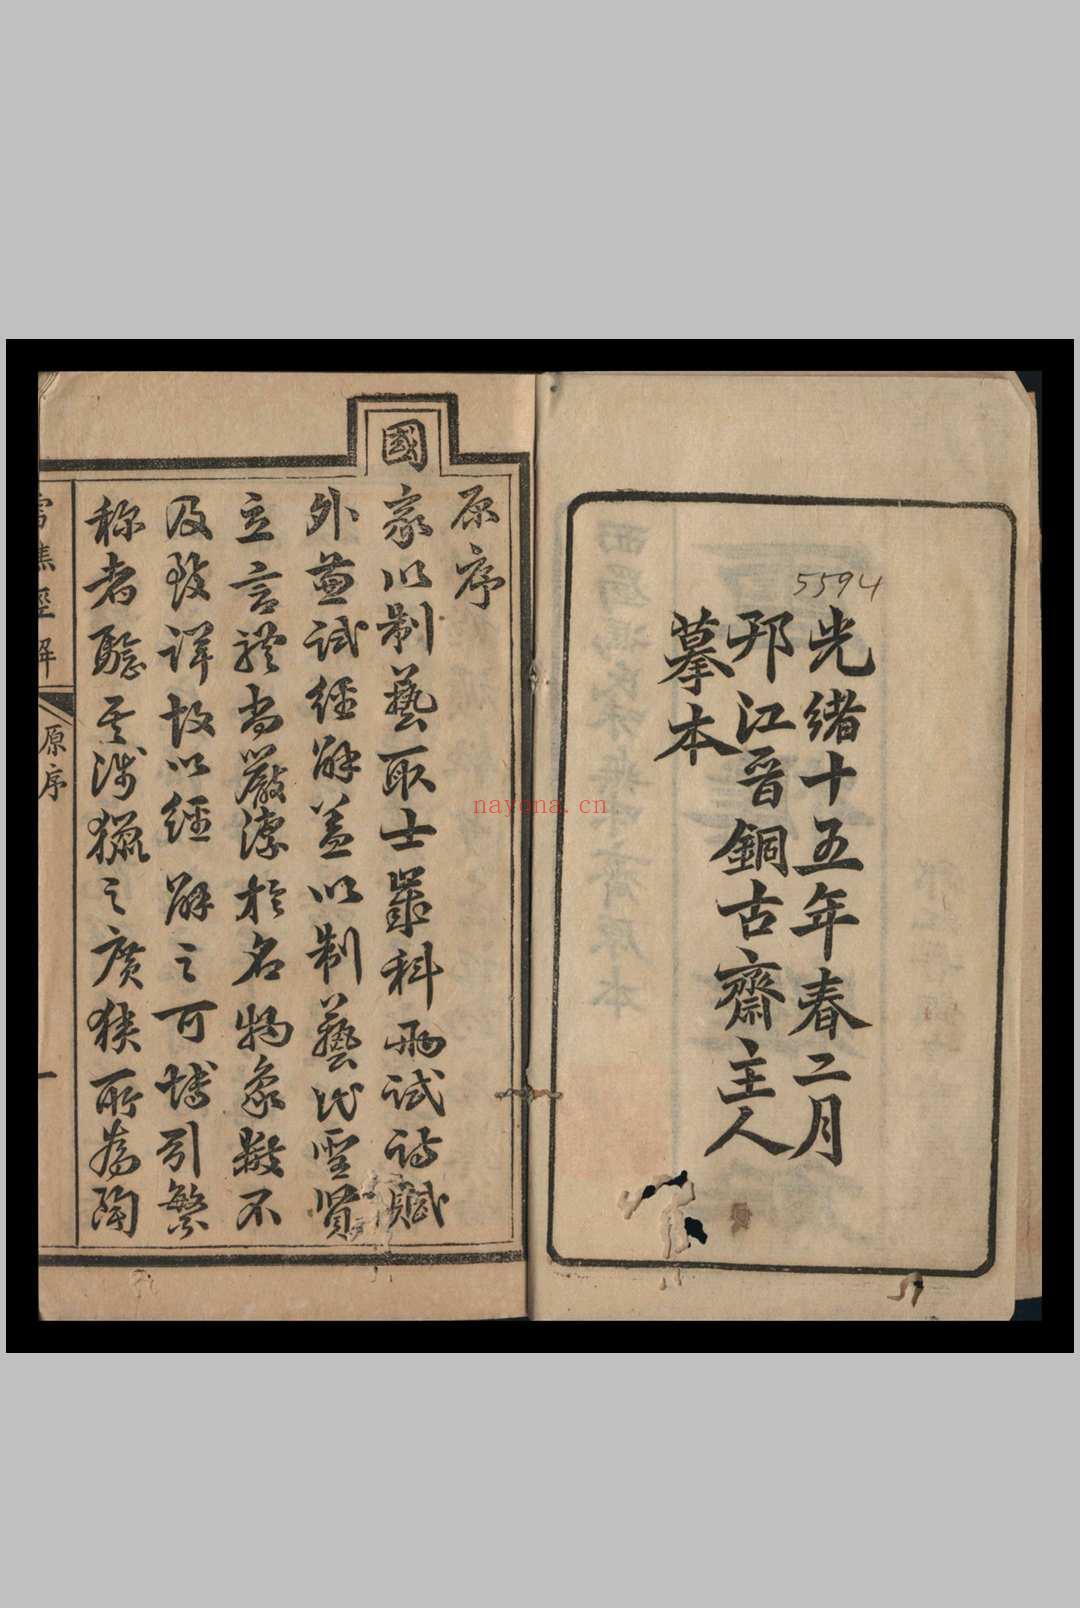 5594
光緒十五年春二月
邗江晉銅古齋主人
摹本
原序
國家以制藝取士歲科兩試詩賦
外兼試經解蓋以制藝代聖賢
立言體尚嚴潔於名物象數不
及致詳故以經解之可博引繁
称者驗其涉獵之廣狹所為陶
經解
原序
一
nayona.cn